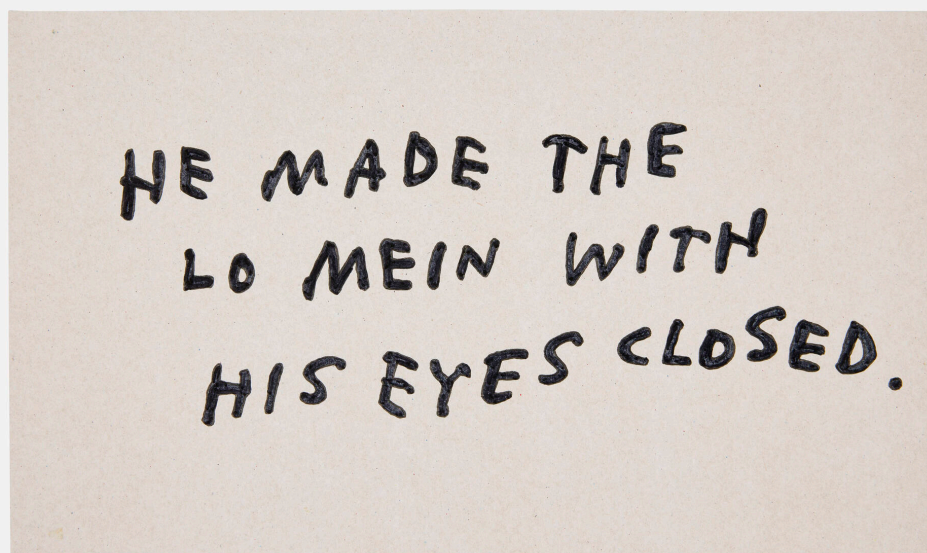 HE MADE THE
LO MEIN WITH
HIS EYES CLOSED.